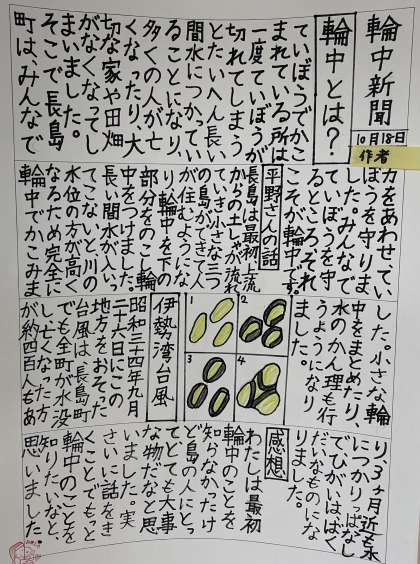 輪中新聞
10月18日
作者
輪中とは?
ていぼうでかこ
まれている所は
一度ていぼうが
切れてしまう
とたいへん長
間水につかってい
ることになり
多くの人が亡
くなったり、大
切な家や田畑
がなくなってし
まいました。
そこで長島
町は、みんなで
力をあわせてい
ぼうを守りま
した。みんなで
ていぼうを守
るところ、それ
こそが輪中です。
平野さんの話
長島は最初上流
からの土しゃが流れ
ていき小さな三つ
の島ができて人
が住むようにな
り、輪中を下の
部分をのこし輪
中をつけました。
長い間水が入っ
てこないと川の
水位の方が高く
なるため完全に
輪中でかこみま
した。小さな輪
中をまとめたり、
水のかん理も行
うようになり
ました。
1
2
3
4
伊勢湾台風
昭和三十四年九月
二十六日にこの
地方をおそった
台風は、長島町
でも全町が水没
し亡くなった方
が約四百人もあ
り、3ヶ月近も水
につかりっぱなし
で、ひがいはばく
だいなものにな
りました。
感想
わたしは最初
輪中のことを
知らなかったけ
ど島の人にとっ
てとても大事
な物だなと思
いました。実
さいに話をき
くことでもっと
輪中のことを
知りたいなと、
思いました。